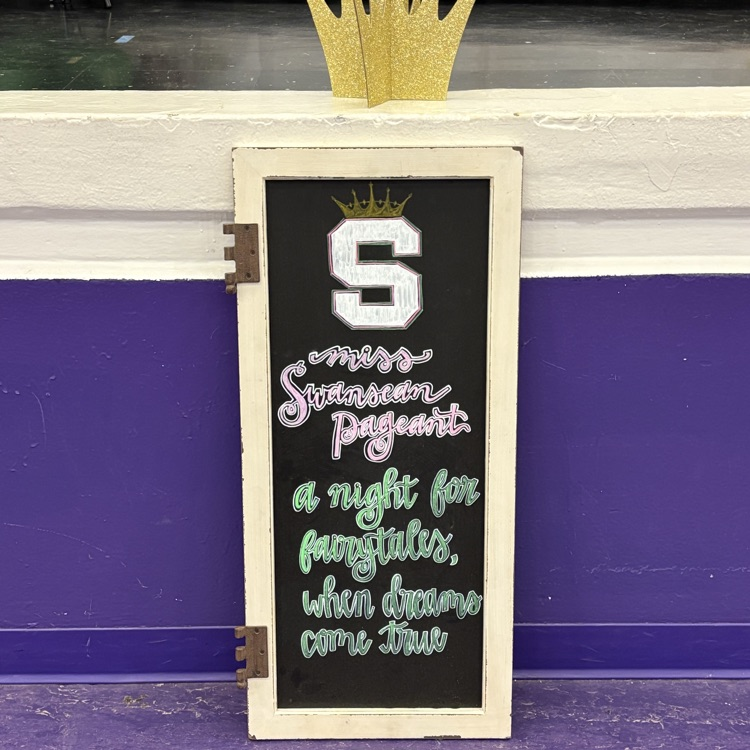 S
miss
Swansean
Pageant
a night for
fairytales,
when dreams
come true